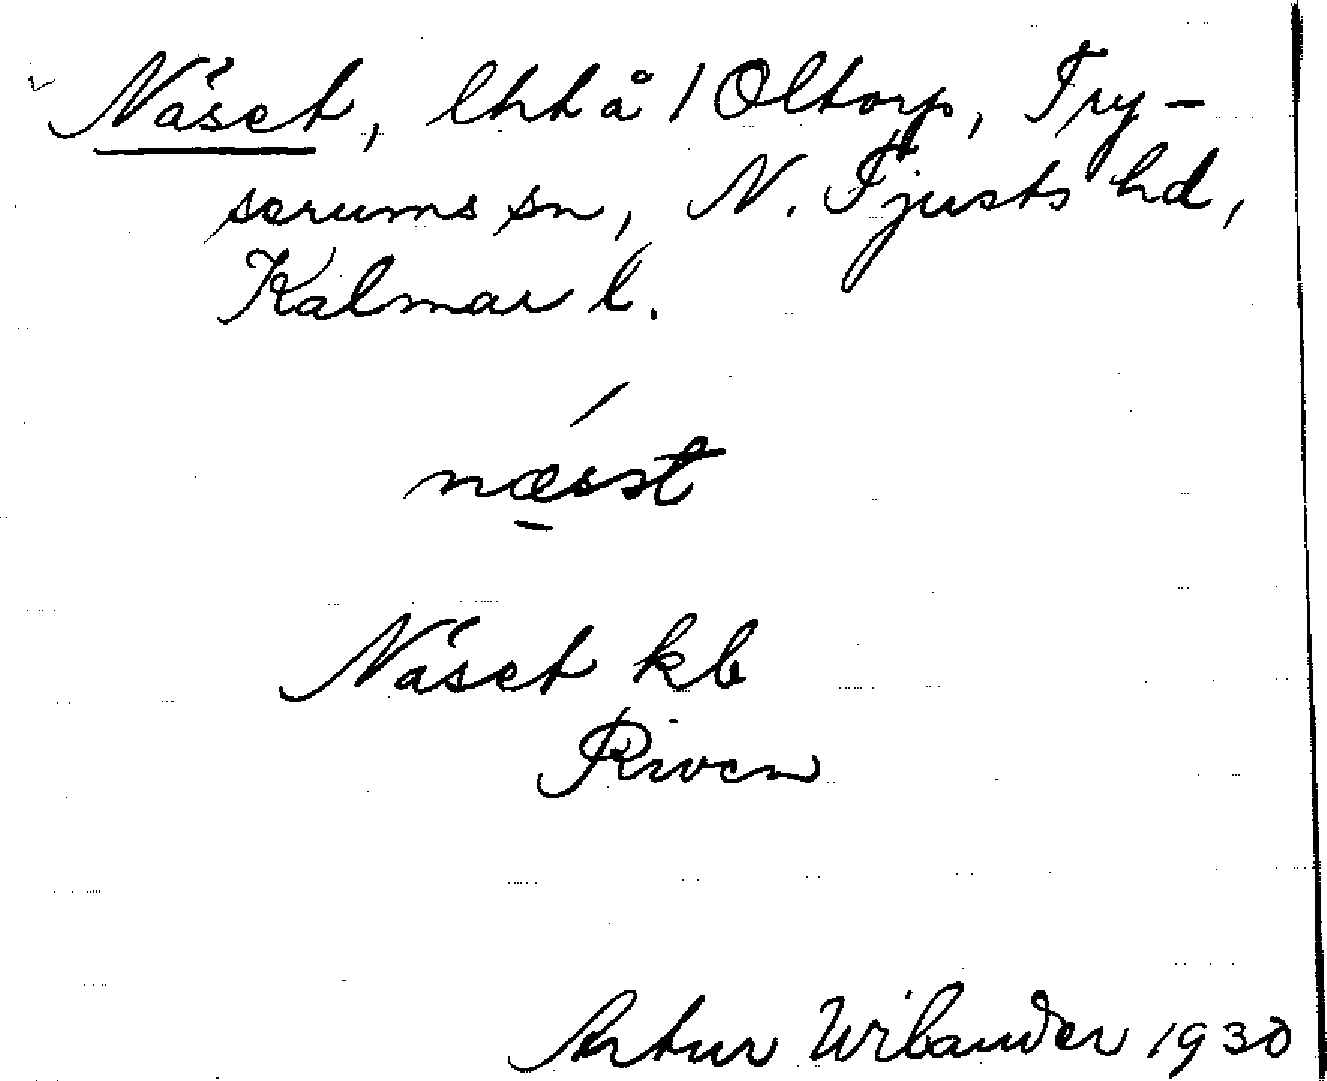 Näset, lht å 1 Oltorp, Try-
serums sn, N. Tjusts hd,
Kalmar l.
næsst
Näset kb
Riven
Artur Wilander 1930